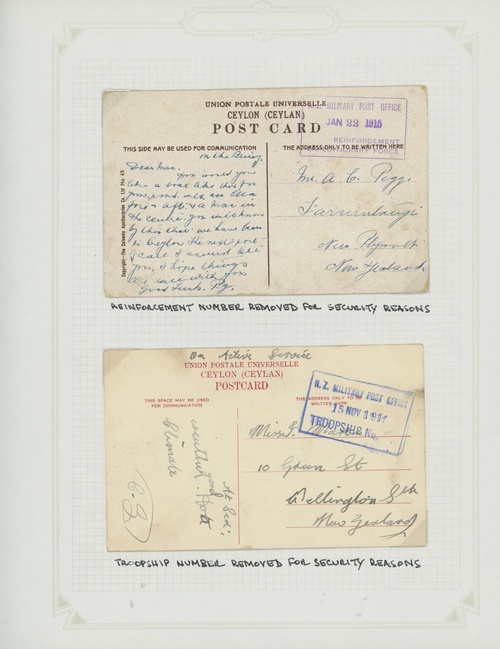 UNION POSTALE UNIVERSELLE
CEYLON (CEYLAN)
POST CARD
N.Z. MILITARY POST OFFICE
JAN 22 1915
REINFORCEMENT
FORCE
THIS SIDE MAY BE USED FOR COMMUNICATION
THE ADDRESS ONLY TO BE WRITTEN HERE
on the Briny.
Dear Mac.
You would
like a boat like this for
your pond with
fore & aft &
the centre. you
by this that we have been
to Ceylon the next post
card I send
you, I hope things
are with you
Good Luck.
Mr. A. C.
New Plymouth
New Zealand
Copyright—The Colombo Apothecaries Co. Ltd No. 63
REINFORCEMENT NUMBER REMOVED FOR SECURITY REASONS
On Active Service
UNION POSTALE UNIVERSELLE
CEYLON (CEYLAN)
POSTCARD
THIS SPACE MAY BE USED
FOR COMMUNICATION
THE ADDRESS ONLY TO BE
WRITTEN HERE
N.Z. MILITARY POST OFFICE
15 NOV 1914
TROOPSHIP No.
At Sea,
good
weather. Hot
Climate
Miss
10 Green St
Wellington Sth
New Zealand
TROOPSHIP NUMBER REMOVED FOR SECURITY REASONS